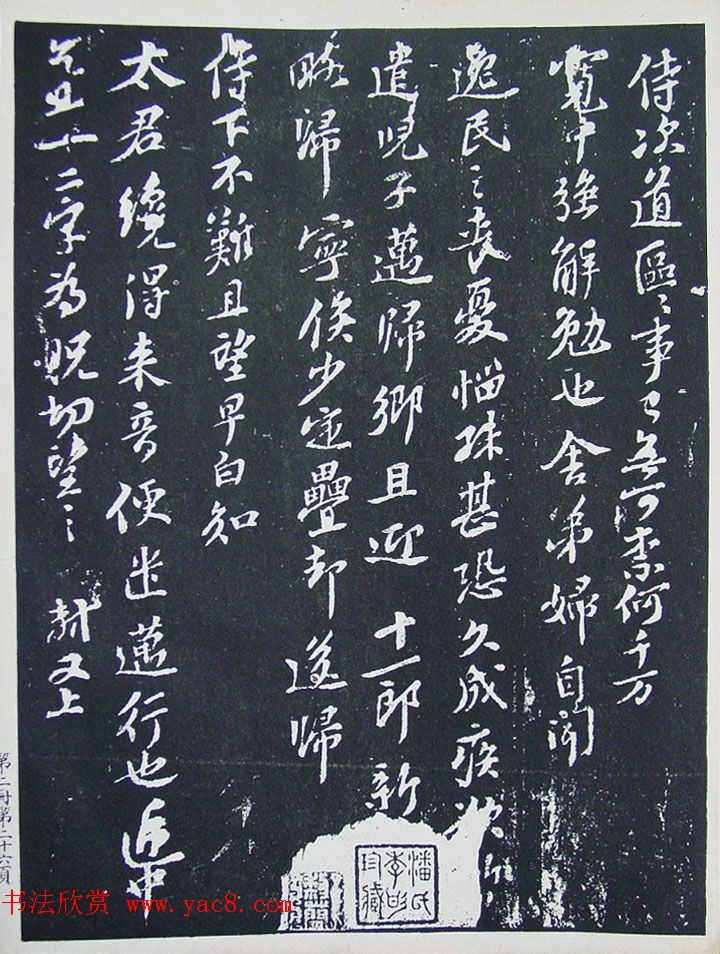 侍次道區〻事已無可柰何千万
寬中強解勉也舍弟婦自聞
逸民之喪憂惱殊甚恐久成疾欲
遣兒子邁歸鄉且迎十一郎新
略歸寧俟少定疊却送歸
侍下不難且望早白知
太君纔得來音便遣邁行也途中
十二字為貺切望〻
軾又上
潘氏季彤珍藏
第二冊第二十六頁
书法欣赏 www.yac8.com